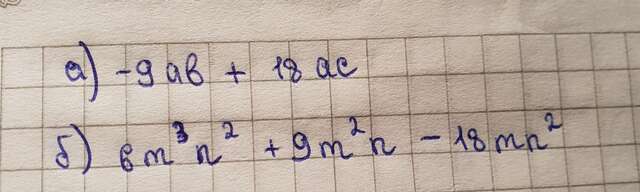 а) -9ab + 18ac
б) 6m³n² + 9m²n - 18mn²